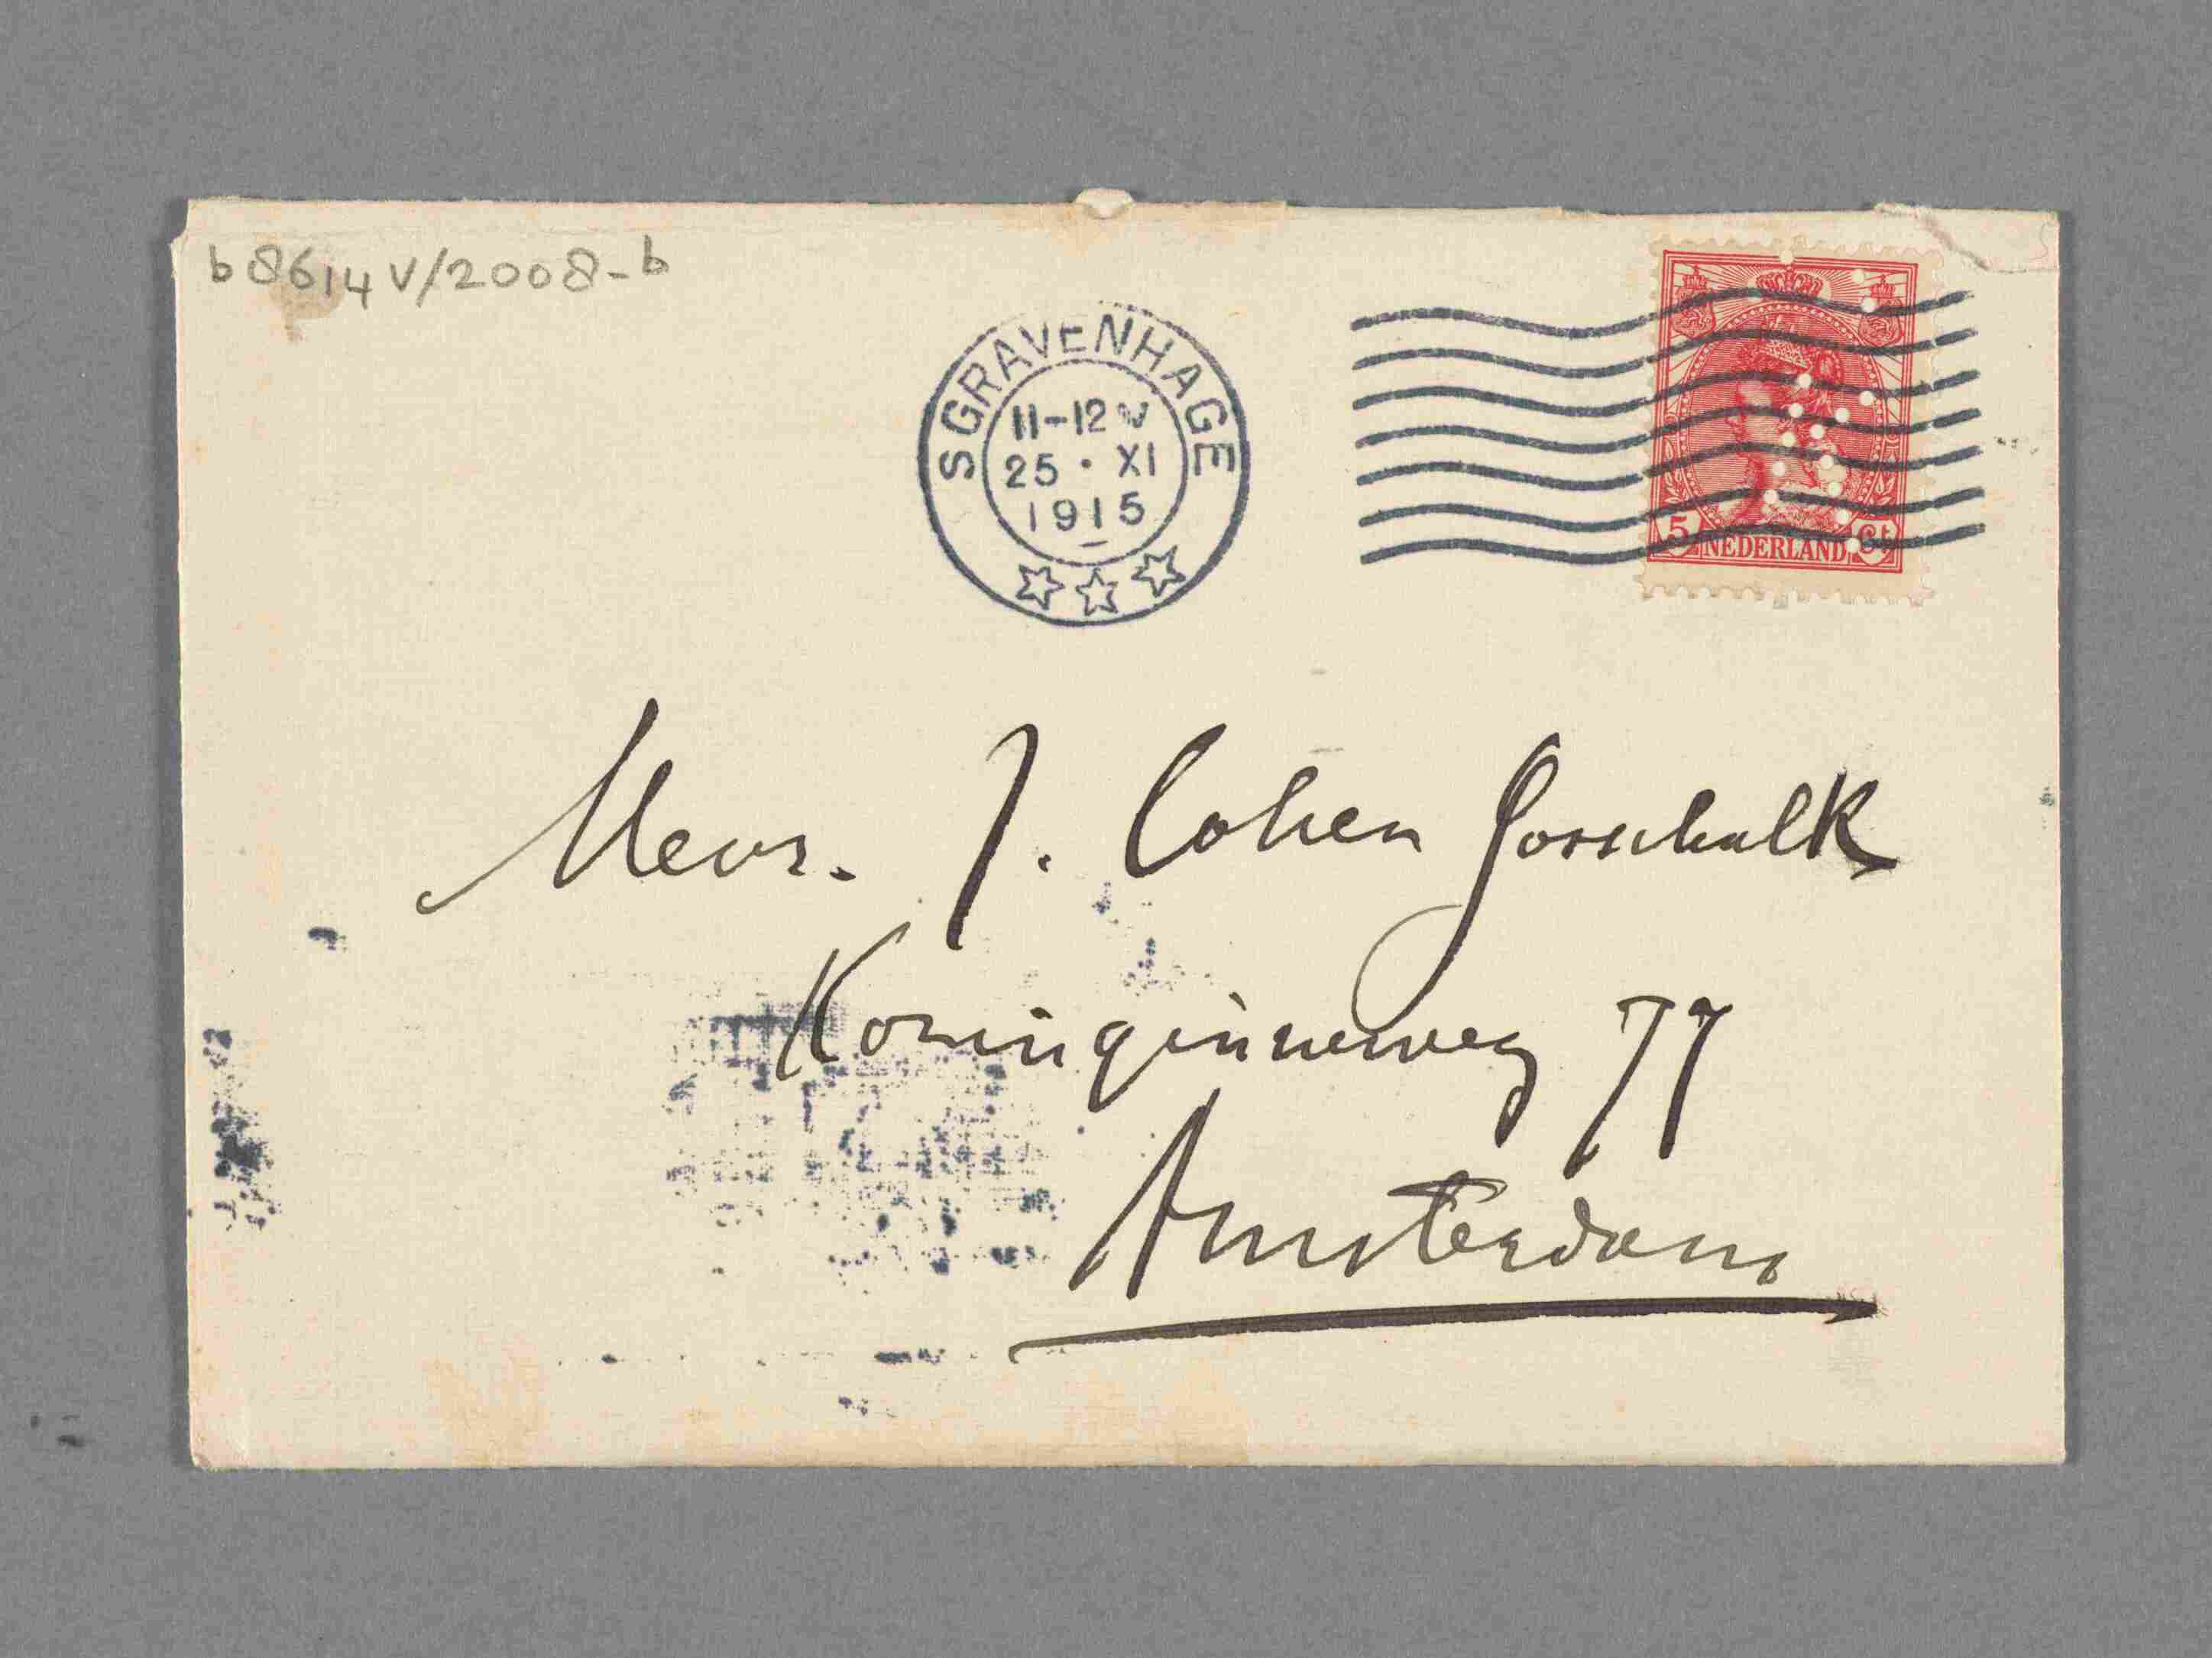 b8614 V/2008-b
S GRAVENHAGE
11-12 V
25 · XI
1915
5 NEDERLAND Ct
Mevr. J. Cohen Gosschalk
Koninginneweg 77
Amsterdam